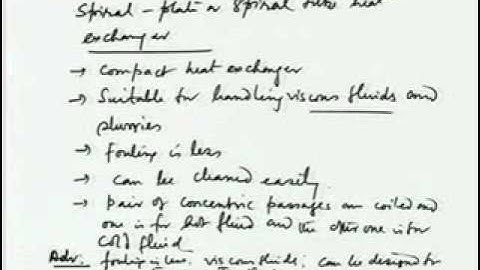 Spiral - plate or Spiral tube heat
exchanger
→ Compact heat exchanger
→ Suitable for handling viscous fluids and
slurries
→ Fouling is less
→ Can be cleaned easily.
→ pair of concentric passages are coiled and
one is for hot fluid and the other one is for
cold fluid
Adv. fouling is less, viscous fluids, can be designed for